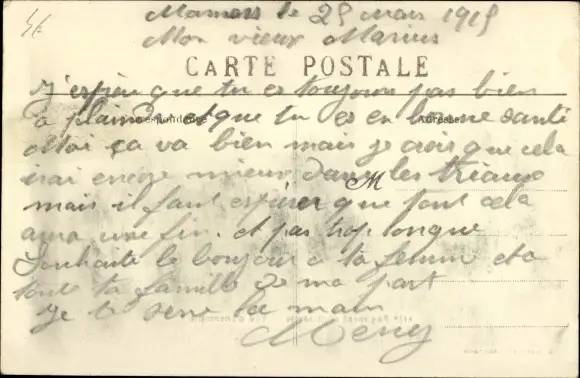 le 25 mars 1915
Mon vieux Marius
CARTE POSTALE
J'espère que tu es toujours pas bien
a plaindre et que tu es en bonne santé
Correspondance Adresse
Moi ça va bien mais je crois que cela
irai encore mieux dans les
M
mais il faut espérer que tout cela
aura une fin. et pas trop longue
Souhaite le bonjour a ta femme et a
toute ta famille de ma part
Je te serre la main